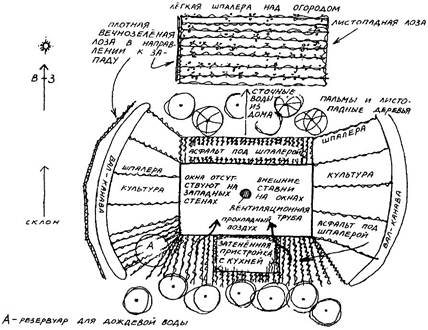 ЛЁГКАЯ ШПАЛЕРА НАД ОГОРОДОМ
ПЛОТНАЯ
ВЕЧНОЗЕЛЁНАЯ
ЛОЗА В НАПРАВ-
ЛЕНИИ К ЗА-
ПАДУ
ЛИСТОПАДНАЯ ЛОЗА
В-З
СТОЧНЫЕ
ВОДЫ
ИЗ
ДОМА
ПАЛЬМЫ И ЛИСТО-
ПАДНЫЕ ДЕРЕВЬЯ
АСФАЛЬТ ПОД ШПАЛЕРОЙ
ШПАЛЕРА
ШПАЛЕРА
ВАЛ-КАНАВА
КУЛЬТУРА
ОКНА ОТСУТ-
СТВУЮТ НА
ЗАПАДНЫХ
СТЕНАХ
ВНЕШНИЕ
СТАВНИ
НА ОКНАХ
ВЕНТИЛЯЦИОННАЯ
ТРУБА
КУЛЬТУРА
ВАЛ-КАНАВА
СКЛОН
ПРОХЛАДНЫЙ
ВОЗДУХ
АСФАЛЬТ ПОД
ШПАЛЕРОЙ
А
ЗАТЕНЁННАЯ
ПРИСТРОЙКА
С КУХНЕЙ
А-РЕЗЕРВУАР ДЛЯ ДОЖДЕВОЙ ВОДЫ